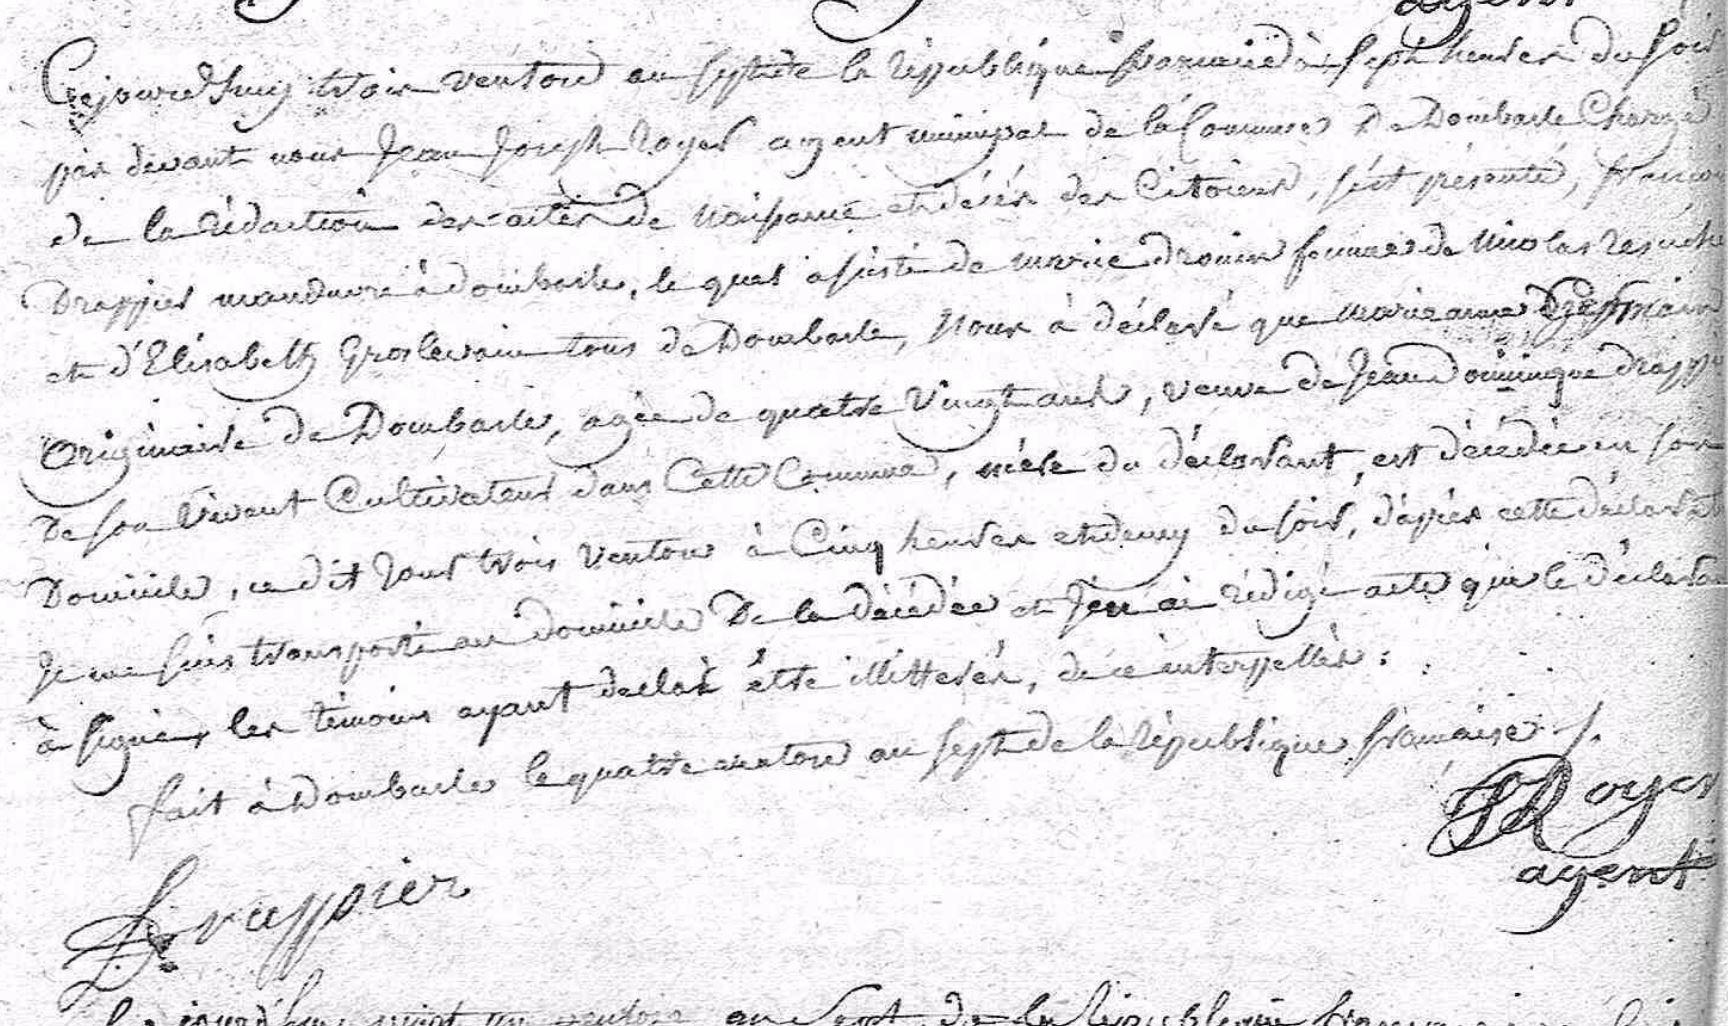 agent
Cejourdhuy trois ventose an sept de la république francaise à sept heures du soir
par devant nous Jean Joseph Royer agent municipal de la Commune De Dombasle Chargé
de la rédaction des actes de naissance et décès des Citoiens, s'est présenté, francois
Drappier manœuvre à dombasle, lequel assisté de marie drouin femme de Nicolas
et d'Elisabeth Groslevain tous de Dombasle, Nous à déclaré que marieanne Germain
Originaire de Dombasle, agée de quatre Vingt ans, veuve de Jean Dominique drappier
De son vivant Cultivateur dans Cette Commune, mère du déclarant, est décédée en son
Domicile, ce dit Jour trois ventose à Cinq heures et demy du soir, d'après cette déclarat
Je me suis transporté au domicile De la décédée et J'en ai rédigé acte que le déclarant
à signé, les témoins ayant declaré être illitterés, de ce interpellés :
fait à Dombasle le quatre ventose an sept de la république francaise /.
JJRoyer
agent
Drappier
Ce jourd'huy vingt un ventose an Sept de la République francaise